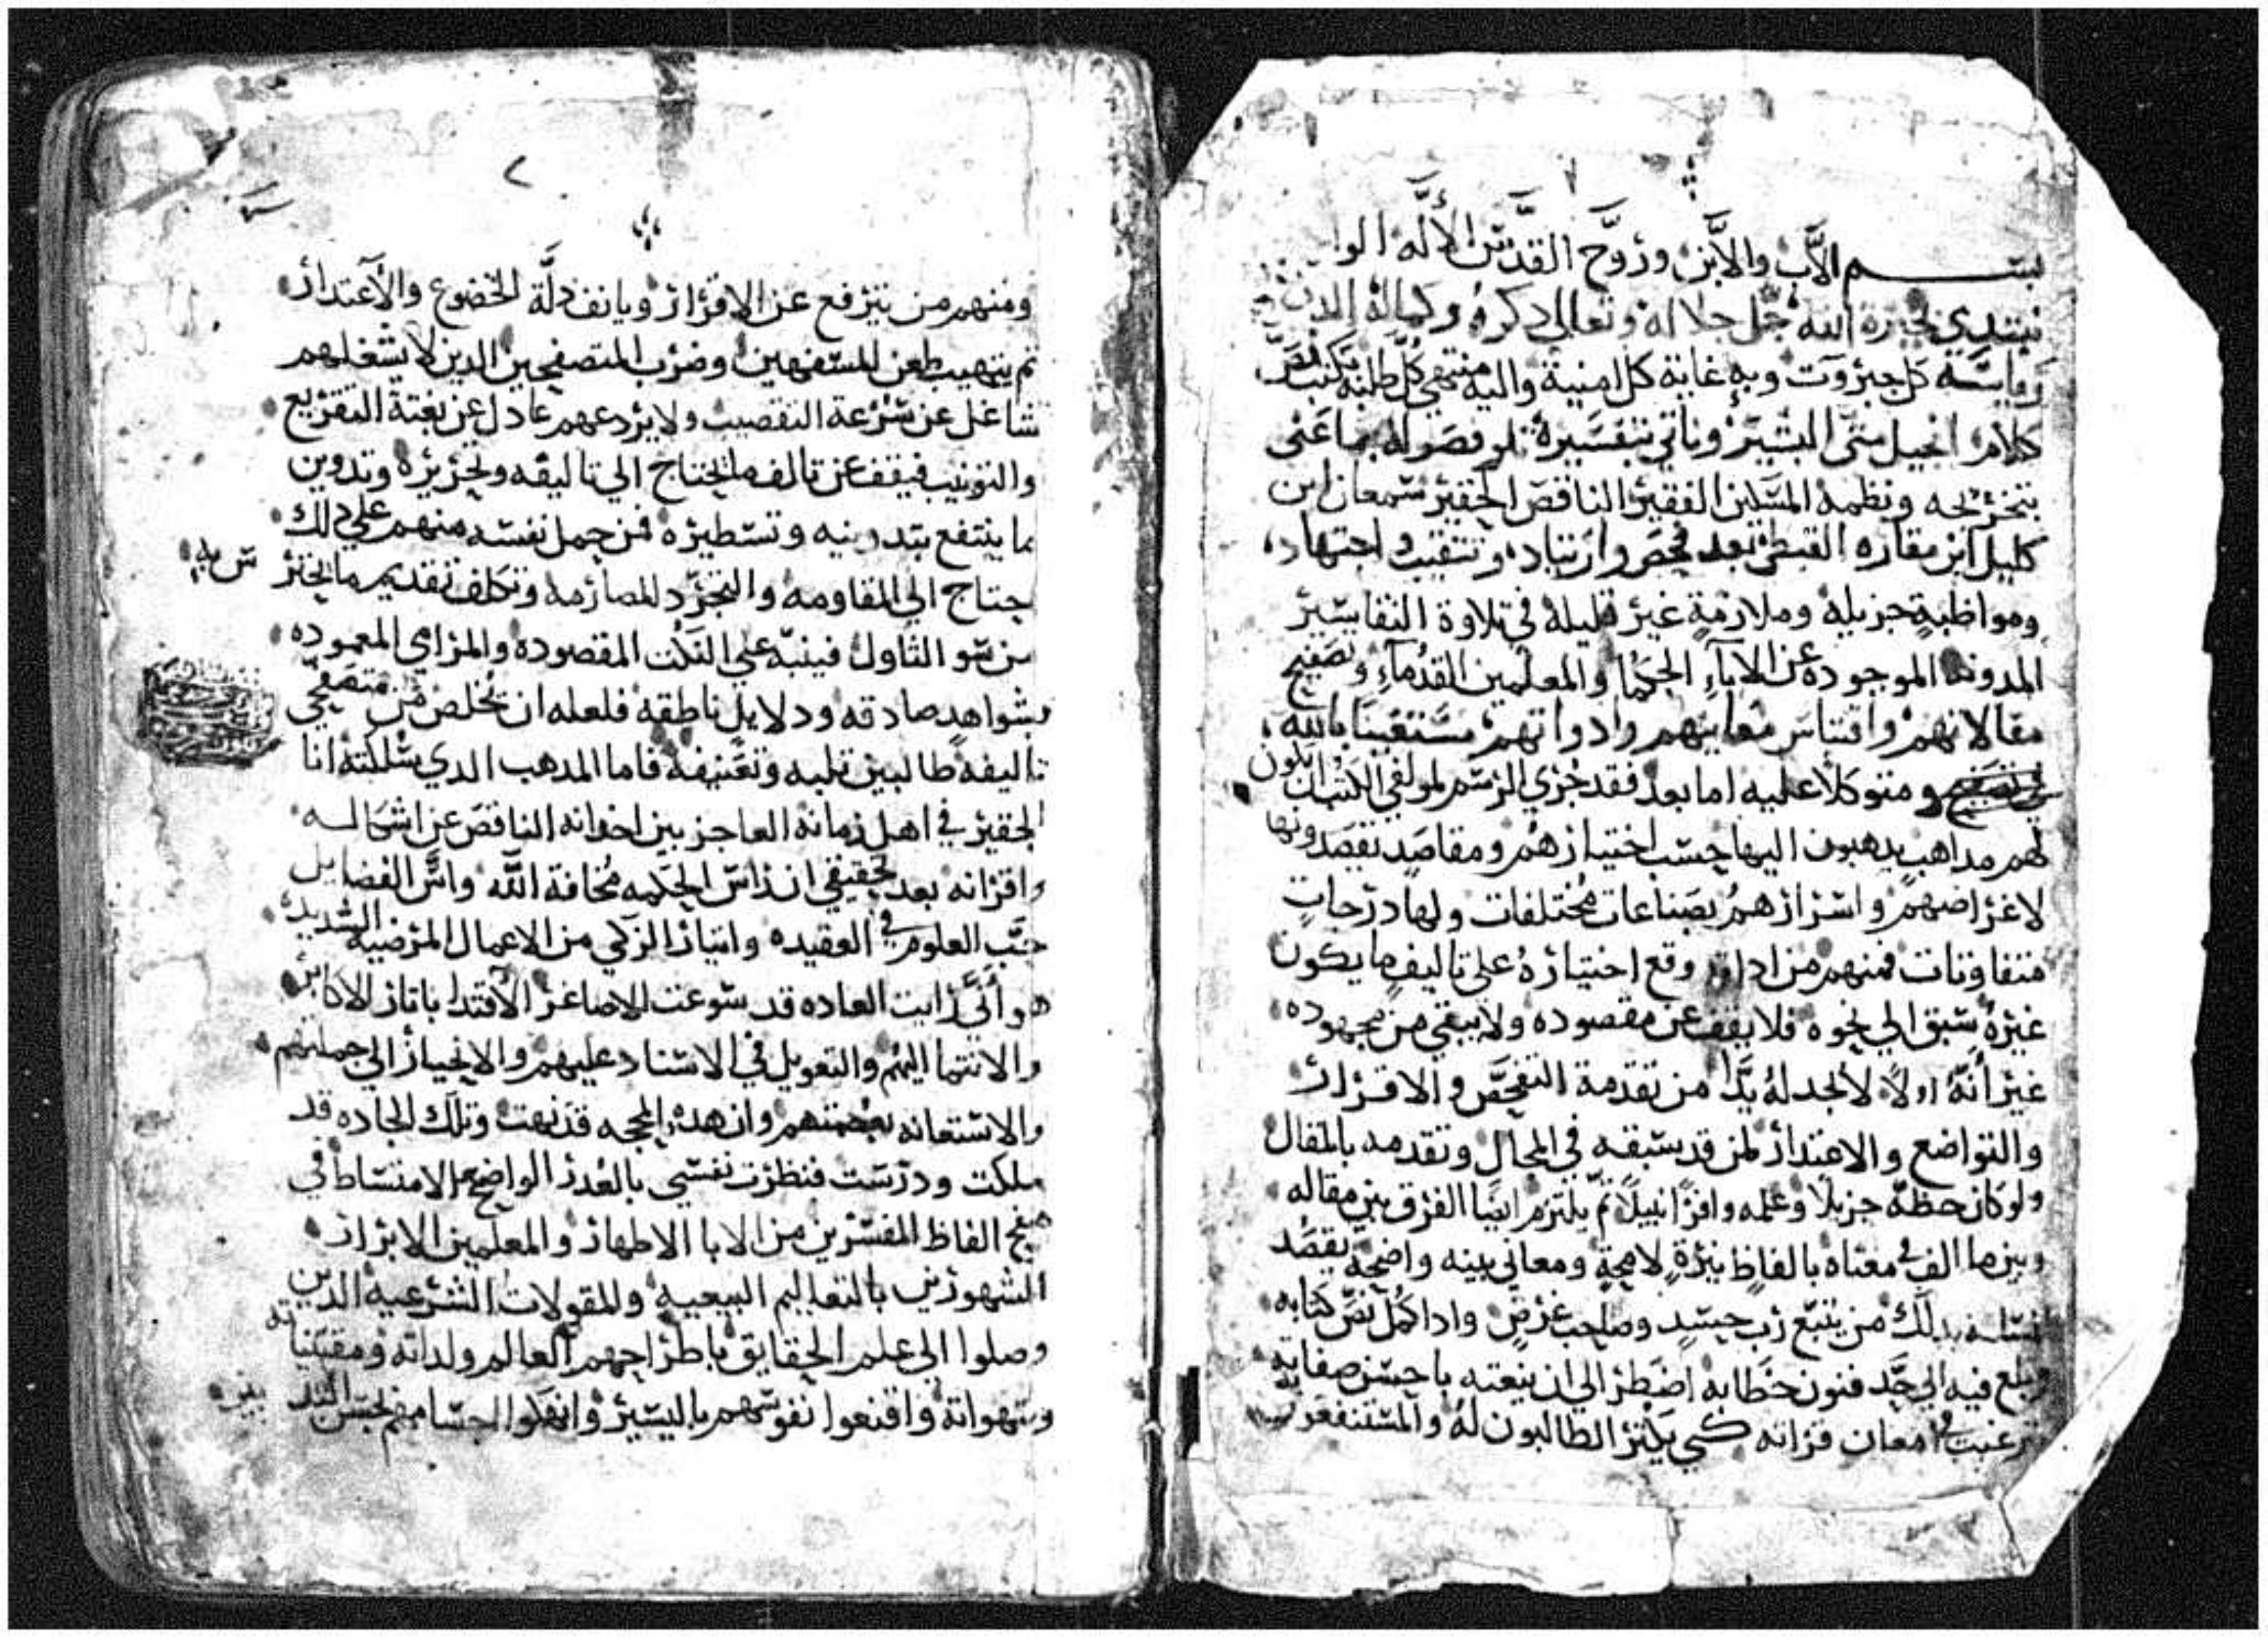 بسم الاب والابن وروح القدس الاله الوا
نبتدي بخيرة الله جل جلاله وتعالى دكره وكماله الدي
رياسة كل جبروت وبه غاية كل امنية واليه منتهي كل طلبه نكتب نص
كلام انجيل متى المبشر وناتي بتفسيره تلو فصوله بما عنى
بتخريجه ونظمه المسكين الفقير الناقص الحقير سمعان ابن
كليل ابن مقاره القبطي بعد فحص وارتياد وتنقيب واجتهاد
ومواظبة جزيله وملازمة غير قليله في تلاوة التفاسير
المدونه الموجوده عن الاباء الحكما والمعلمين القدماء وتصفيح
مقالاتهم واقتباس معانيهم وادواتهم مستعينا بالله
ومتوكلا عليه اما بعد فقد جرى الرسم لمولفي الكتب ان تكون
لهم مداهب يدهبون اليها حسب اختيارهم ومقاصد يقصدونها
لاغراضهم واسرارهم بصناعات مختلفات ولها درجات
متفاوتات فمنهم من ادا وقع اختياره على تاليف ما يكون
غيره سبق الي نحوه فلا يقف عن مقصوده ولا يبقي من مجهوده
غير انه اولا لا يجد له بدا من تقدمة التفحص والاقرار
والتواضع والاعتدار لمن قد سبقه في المجال وتقدمه بالمقال
ولو كان حظه جزيلا وعلمه وافرا نبيلا ثم يلتزم ايضا الفرق بين مقاله
وبين ما الف في معناه بالفاظ نيرة لامحة ومعاني بينه واضحة يقصد
بدلك من يتبع رب حسد وصاحب غرض وادا كمل نص كتابه
وبلغ فيه الي حد فنون خطابه اضطر الي ان ينعته باحسن صفاته
ترغيب في امعان قراته كي يكثر الطالبون له والمستنفعون به
٢
ومنهم من يترفع عن الاقرار ويانف دلة الخضوع والاعتدار
ثم يتهيب طعن المستفهين وضرب المتصفحين الدين لا يشغلهم
شاغل عن سرعة التقصيب ولا يردعهم عادل عن بغتة التقريع
والتونيب فيقف عن تالف ما يحتاج الي تاليفه وتحريره وتدوين
ما ينتفع بتدوينه وتسطيره فمن حمل نفسه منهم علي دلك
احتاج الي المقاومه والتجرد للمصارمه وتكلف تقديم ما يحترس به
من سو التاول فينبه علي النكت المقصوده والمرامي المعموده
بشواهد صادقه ودلايل ناطقه فلعله ان يخلص من متصفحي
تاليفه طالبين تلبه وتعنيفه فاما المدهب الدي سلكته انا
الحقير في اهل زمانه العاجز بين اخوانه الناقص عن اشكاله
واقرانه بعد تحقيقي ان راس الحكمه مخافة الله واس الفضايل
حب العلوم في العقيده وايثار الزكي من الاعمال المرضيه السديده
واني رايت العاده قد سوغت للاصاغر الاقتدا باثار الاكابر
والانتما اليهم والتعويل في الاستناد عليهم والانحياز الي جملتهم
والاستعانه وان هده المحجه قد نهجت وتلك الجاده قد
سلكت ودرست فنظرت نفسي بالعدر الواضح الامتساط في
الفاظ المفسرين من الابا الاطهار والمعلمين الابرار
المشهورين بالتعاليم البيعيه والمقولات الشرعيه الدين
وصلوا الي علم الحقايق باطراحهم العالم ولداته ومقتنياته
وشهواته واقنعوا نفوسهم باليسير اجسامهم بحسن التدبير